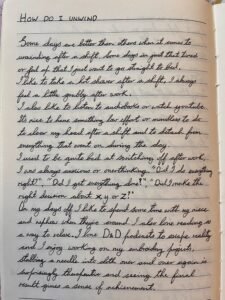 HOW DO I UNWIND
Some days are better than others when it comes to
unwinding after a shift. Some days im just that tired
or fed up that I just want to go straight to bed.
I like to take a hot shower after a shift, I always
feel a little grubby after work.
I also like to listen to audiobooks or watch youtube.
Its nice to have something low effort or mindless to do
to clear my head after a shift and to detach from
everything that went on during the day.
I used to be quite bad at switching off after work,
I was always anxious or overthinking. "Did I do everything
right?", "Did I get everything done?", "Did I make the
right decision about x, y or z?"
On my days off I like to spend some time with my niece
and nephew when theyre around. I also love reading as
a way to relax. I love D&D podcasts to escape reality
and I enjoy working on my embroidery projects,
stabbing a needle into cloth over and over again is
surprisingly therapeutic and seeing the final
result gives a sense of achievement.